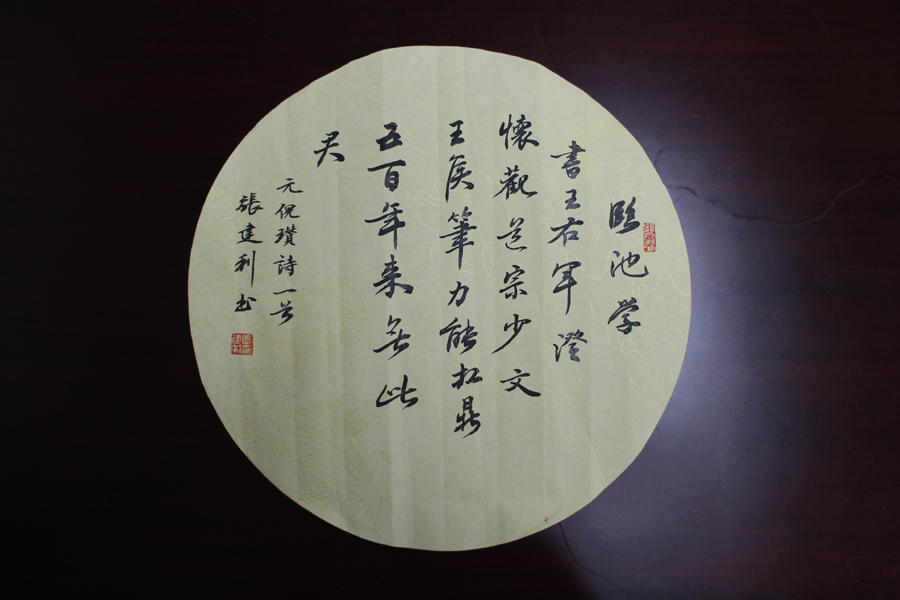 臨池学
書王右军澄
懷觀道宗少文
王侯筆力能扛鼎
五百年来無此
君
元倪瓚詩一首
張建利书